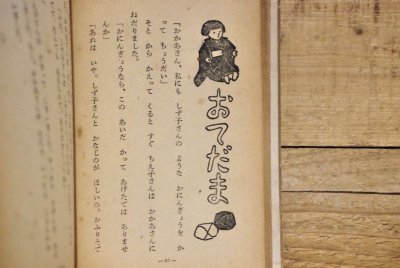 おてだま
「おかあさん、私にも しず子さんの ような おにんぎょうを か
って ちょうだい」
そと から かえって くると すぐ ちえ子さんは おかあさんに
ねだりました。
「おにんぎょうなら、この あいだ かって あげたでは ありませ
んか」
「あれは いや。しず子さんと おなじのが ほしいの。おふりそで